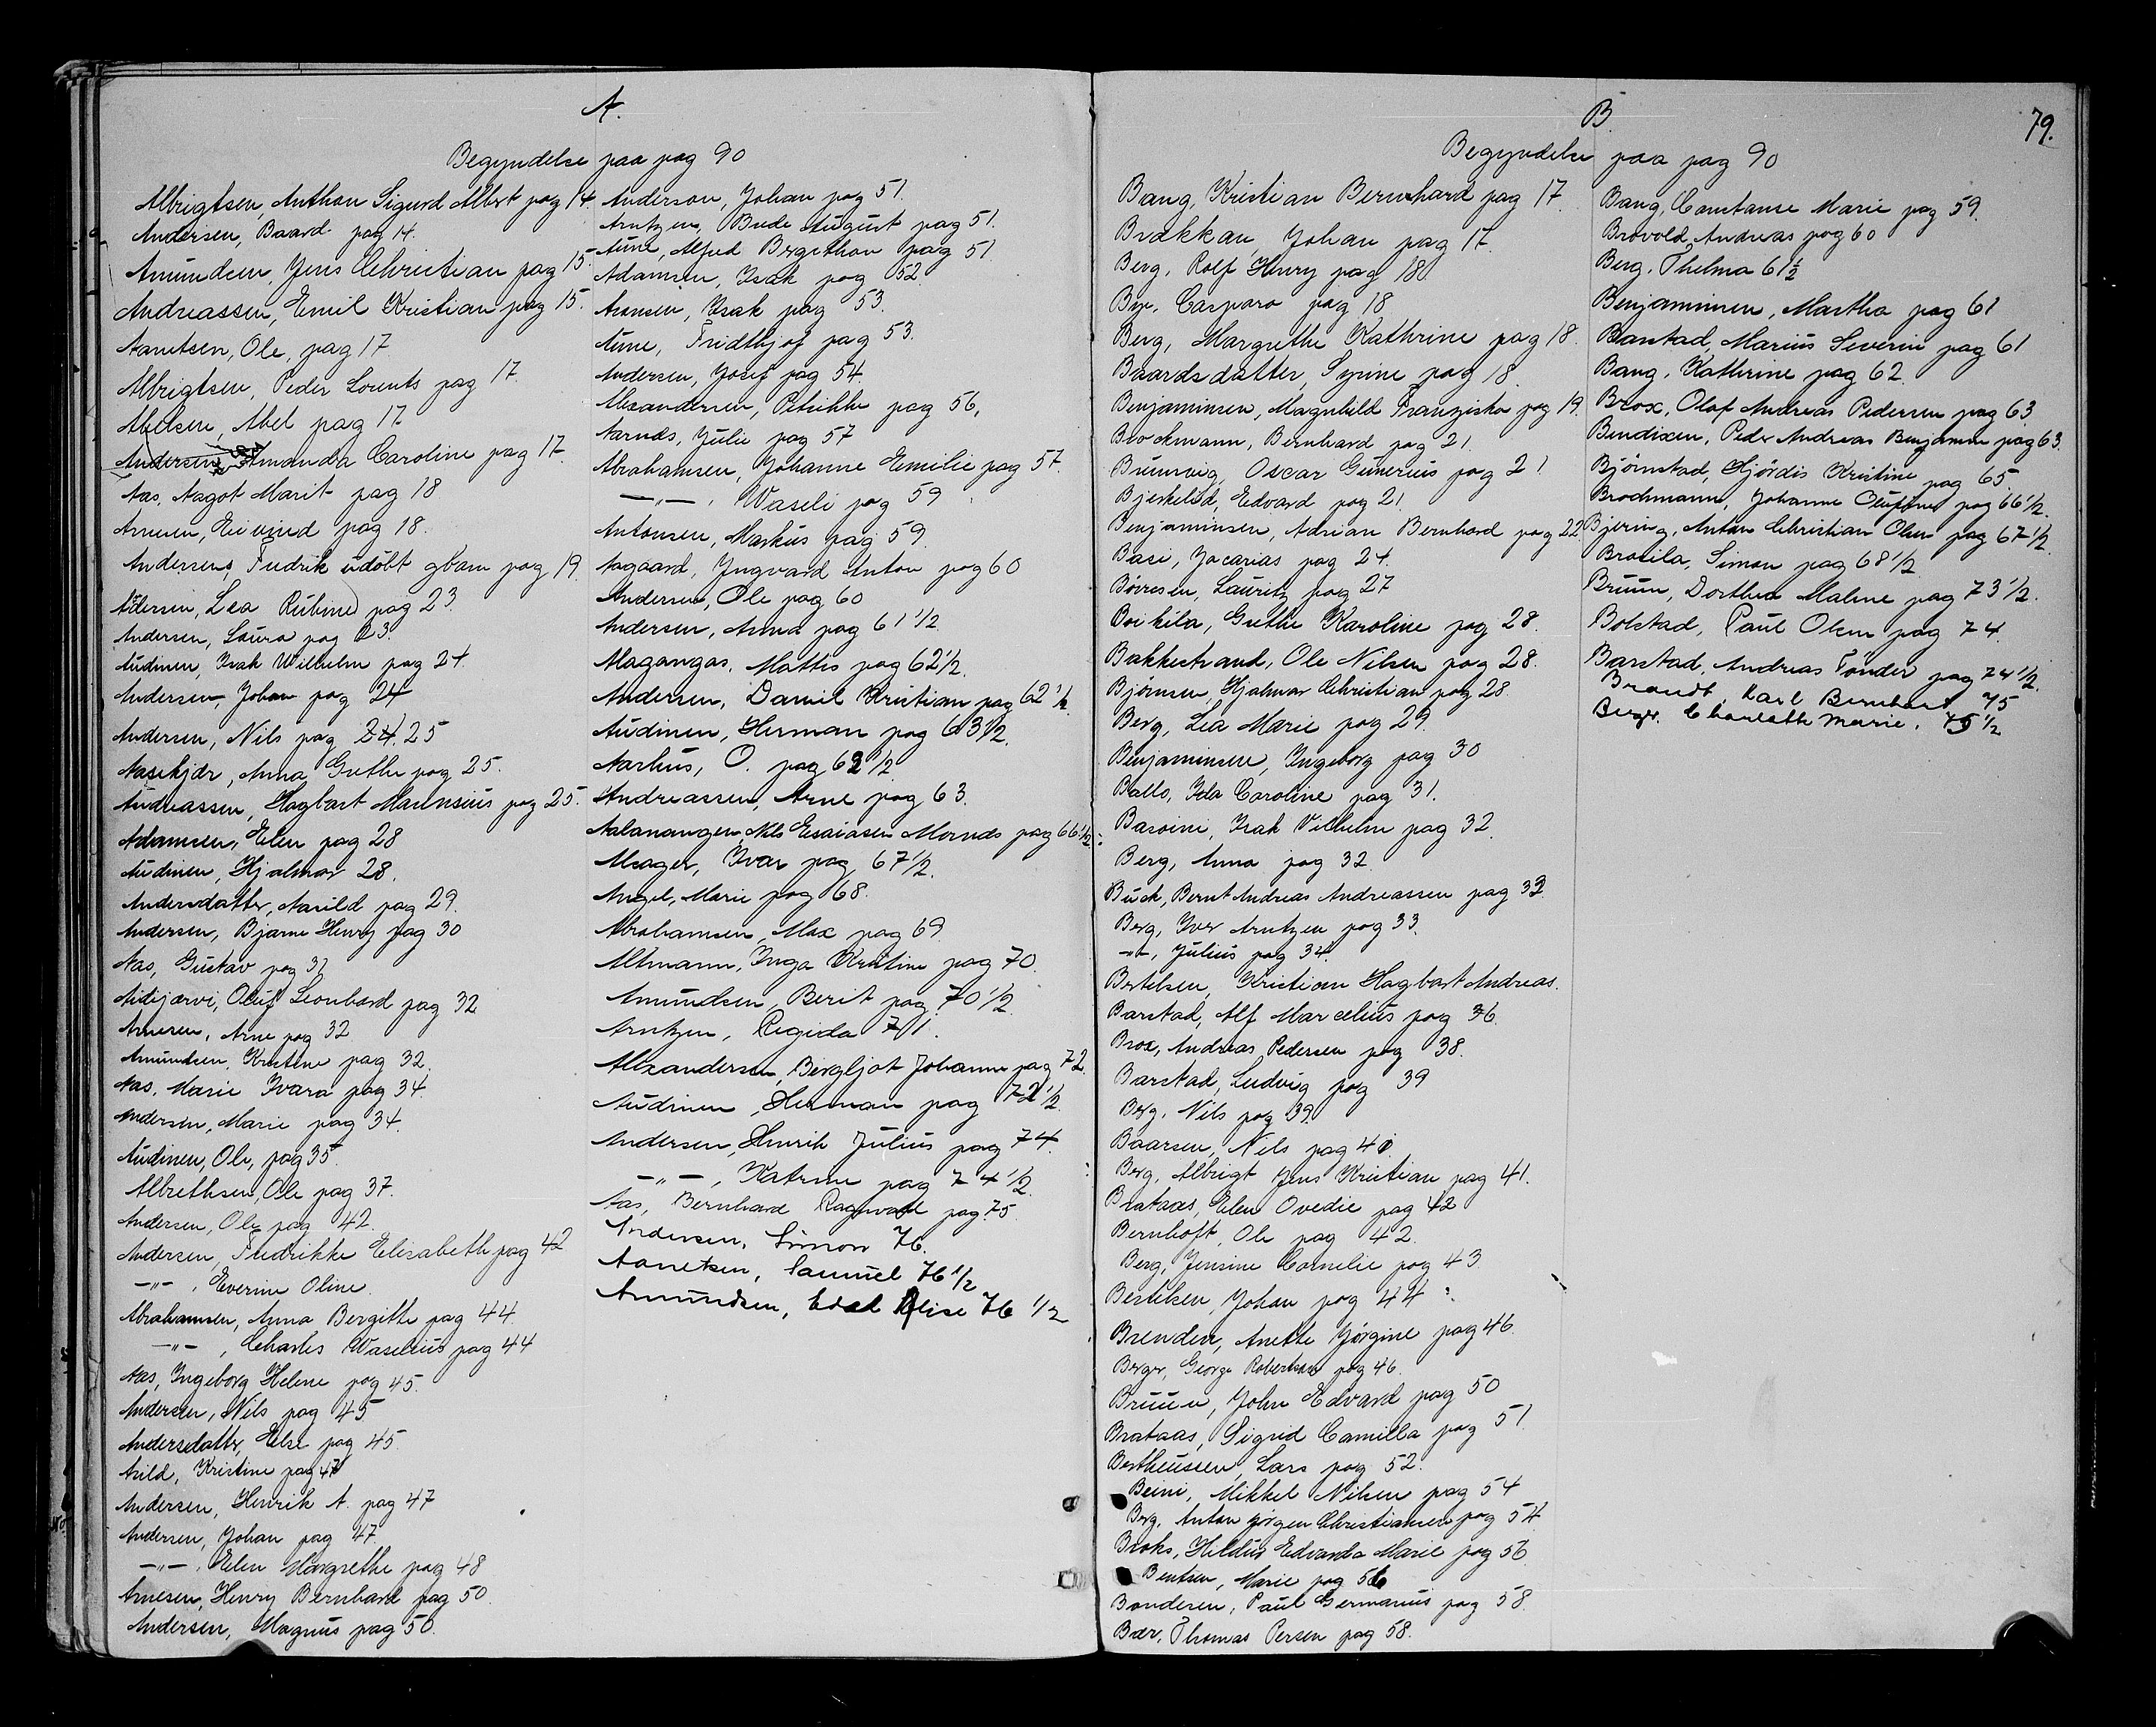 A.
Begyndelse paa pag 90
Albrigtsen, Anthon Sigurd Albert pag 14.
Andersen, Baard pag 14.
Amundsen, Jens Christian pag 15
Andreassen, Emil Kristian pag 15.
Aanetsen, Ole, pag 17
Albrigtsen, Peder Lorents pag 17.
Abelsen, Abel pag 17
Andersen, Amanda Caroline pag 17
Aas, Aagot Marit pag 18
Arnesen, Eivind pag 18.
Andersens, Fredrik udöbt gbarn pag 19.
Andersen, Lea Rubine pag 23.
Andersen, Laura pag 23.
Audinen, Isak Wilhelm pag 24.
Andersen, Johan pag 24
Andersen, Nils pag 24. 25
Anna Grethe pag 25.
Andreassen, Hagbart Marensius pag 25.
Adamsen, Elen pag 28
Audinen, Hjalmar 28.
Andersdatter, Aarild pag 29.
Andersen, Bjarne Henry pag 30
Aas, Gustav pag 31
Aidijærvi, Oluf Leonhard pag 32
Arnesen, Arne pag 32
Amundsen, Kristine pag 32.
Aas, Marie Ivara pag 34.
Andersen, Marie pag 34.
Audinen, Ole, pag 35.
Albrethsen, Ole pag 37.
Andersen, Ole pag 42.
Andersen, Fredrikke Elisabeth pag 42
-"- , Everine Oline.
Abrahamsen, Anna Bergitte pag 44.
-"- , Charles Waselius pag 44
Aas, Ingeborg Helene pag 45.
Andersen, Nils pag 45
Andersdatter, Else pag 45.
Arild, Kristine pag 47
Andersen, Henrik A. pag 47
Andersen, Johan pag 47.
-"- , Elen Margrethe pag 48
Arnesen, Henry Bernhard pag 50.
Andersen, Magnus pag 50.
Anderson, Johan pag 51.
Arntzen, Bude August pag 51.
Aune, Alfred Bergithon pag 51
Adamsen, Isak pag 52.
Aronsen, Isak pag 53.
Aune, Fridthjof pag 53.
Andersen, Josef pag 54.
Alexandersen, Petrikke pag 56.
Aarnæs, Julie pag 57
Abrahamsen, Johanne Emilie pag 57.
-"- , Waseli pag 59
Antonsen, Markus pag 59.
Aagaard, Yngvard Anton pag 60
Andersen, Ole pag 60
Andersen, Anna pag 61 1/2
Magangas, Mattis pag 62 1/2.
Andersen, Daniel Kristian pag 62 1/2
Audinen, Herman pag 63 1/2.
Aarhus, O. pag 62 1/2
Andreassen, Arne pag 63.
Aalanangen Nils Esaiasen Mornæs pag 66 1/2
Alsager, Ivar pag 67 1/2.
Angel, Marie pag 68.
Abrahamsen, Max pag 69.
Altmann, Inga Kristine pag 70.
Amundsen, Berit pag 70 1/2.
Arntzen, Regida 71.
Alexandersen, Bergljot Johanne pag 72.
Audinen, Herman pag 72 1/2.
Andersen, Henrik Julius pag 74.
-"- , Katrine pag 74 1/2.
Aas, Bernhard Ragnvald pag. 75.
Andersen, Simon 76.
Aanetsen, Samuel 76 1/2
Amundsen, Edel Alise 76 1/2
79.
B.
Begyndelse paa pag 90
Bang, Kristian Bernhard pag 17.
Brækkan, Johan pag 17.
Berg, Rolf Henry pag 18.
Bye, Caspara pag 18
Berg, Margrethe Kathrine pag 18.
Baardsdatter, Syrine pag 18.
Benjaminsen, Magnhild Franziska pag 19.
Brockmann, Bernhard pag 21.
Brunvig, Oscar Gunerius pag 21
Bjerkelid, Edvard pag 21.
Benjaminsen, Adrian Bernhard pag 22.
Basi, Zacarias pag 24.
Børresen, Lauritz pag 27
Boikila, Grethe Karoline pag 28.
Bakkestrand, Ole Nilsen pag 28.
Bjørnsen, Hjalmar Christian pag 28.
Berg, Lea Marie pag 29.
Benjaminsen, Ingeborg pag 30
Ballo, Ida Caroline pag 31.
Basoini, Isak Vilhelm pag 32.
Berg, Anna pag 32.
Buck, Bernt Andreas Andreassen pag 33.
Berg, Iver Arntzen pag 33.
-"-, Julius pag 34.
Bertelsen, Kristian Hagbart Andreas.
Barstad, Alf Marcelius pag 36.
Brox, Andreas Pedersen pag 38.
Barstad, Ludvig pag 39
Berg, Nils pag 39.
Baarsen, Nils pag 41.
Berg, Albrigt Jens Kristian pag 41.
Brataas, Elen Ovedie pag 42
Bernhoft, Ole pag 42.
Berg, Jensine Cornelie pag 43
Bertelsen, Johan pag 44.
Brenden, Anette Jørgine pag 46.
Berger, George Robertson pag 46.
Bruun, John Edvard pag 50
Brataas, Sigrid Camilla pag 51.
Bertheussen, Lars pag 52.
Beini, Mikkel Nilsen pag 54
Berg, Anton Jørgen Christiansen pag 54.
Broks, Hildur Edvarda Marie pag 56
Bentsen, Marie pag 56
Bondesen, Paul Germanus pag 58.
Bær, Thomas Persen pag 58.
Bang, Constanse Marie pag 59.
Brovold, Andreas pag 60
Berg, Thelma 61 1/2
Benjaminsen, Martha pag 61
Barstad, Marius Severin pag 61
Bang, Kathrine pag 62.
Brox, Olaf Andreas Pedersen pag 63
Bendixen, Peder Andreas Benjamin pag 63.
Bjørnstad, Hjørdis Kristine pag 65.
Brochmann, Johanne Olufine pag 66 1/2.
Bjering, Anton Christian Olsen pag 67 1/2.
Brosila, Simon pag 68 1/2.
Bruun, Dorthea Malene pag 73 1/2.
Bolstad, Paul Olsen pag 74.
Barstad, Andreas Tønder pag 74 1/2.
Brandt, Karl Bernhard 75
Berger, Charlotte Marie, 75 1/2